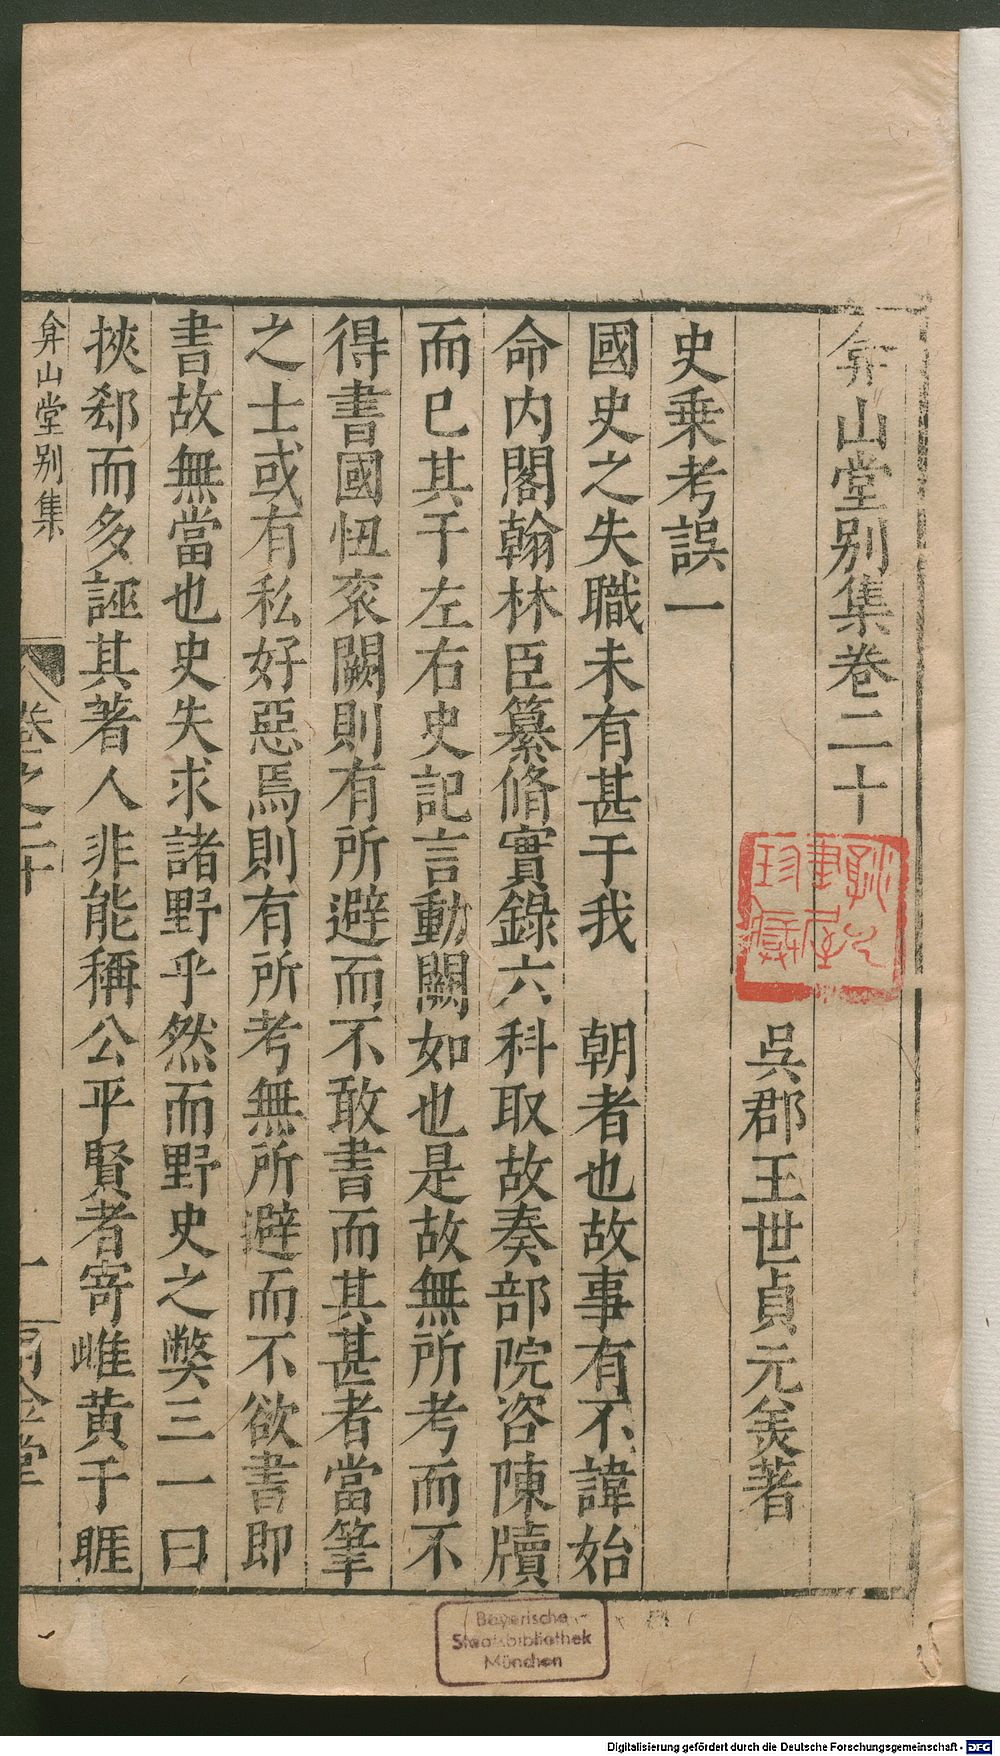 弇山堂别集卷二十
吳郡王世貞元美著
史乗考誤一
國史之失職未有甚于我　朝者也故事有不諱始
命内閣翰林臣纂脩實錄六科取故奏部院咨陳牘
而已其于左右史記言動闕如也是故無所考而不
得書國忸衮闕則有所避而不敢書而其甚者當筆
之士或有私好惡焉則有所考無所避而不欲書即
書故無當也史失求諸野乎然而野史之弊三一曰
挾郄而多誣其著人非能稱公平賢者寄雌黄于睚
弇山堂别集
卷之二十
一
Bayerische
Staatsbibliothek
München
Digitalisierung gefördert durch die Deutsche Forschungsgemeinschaft - DFG